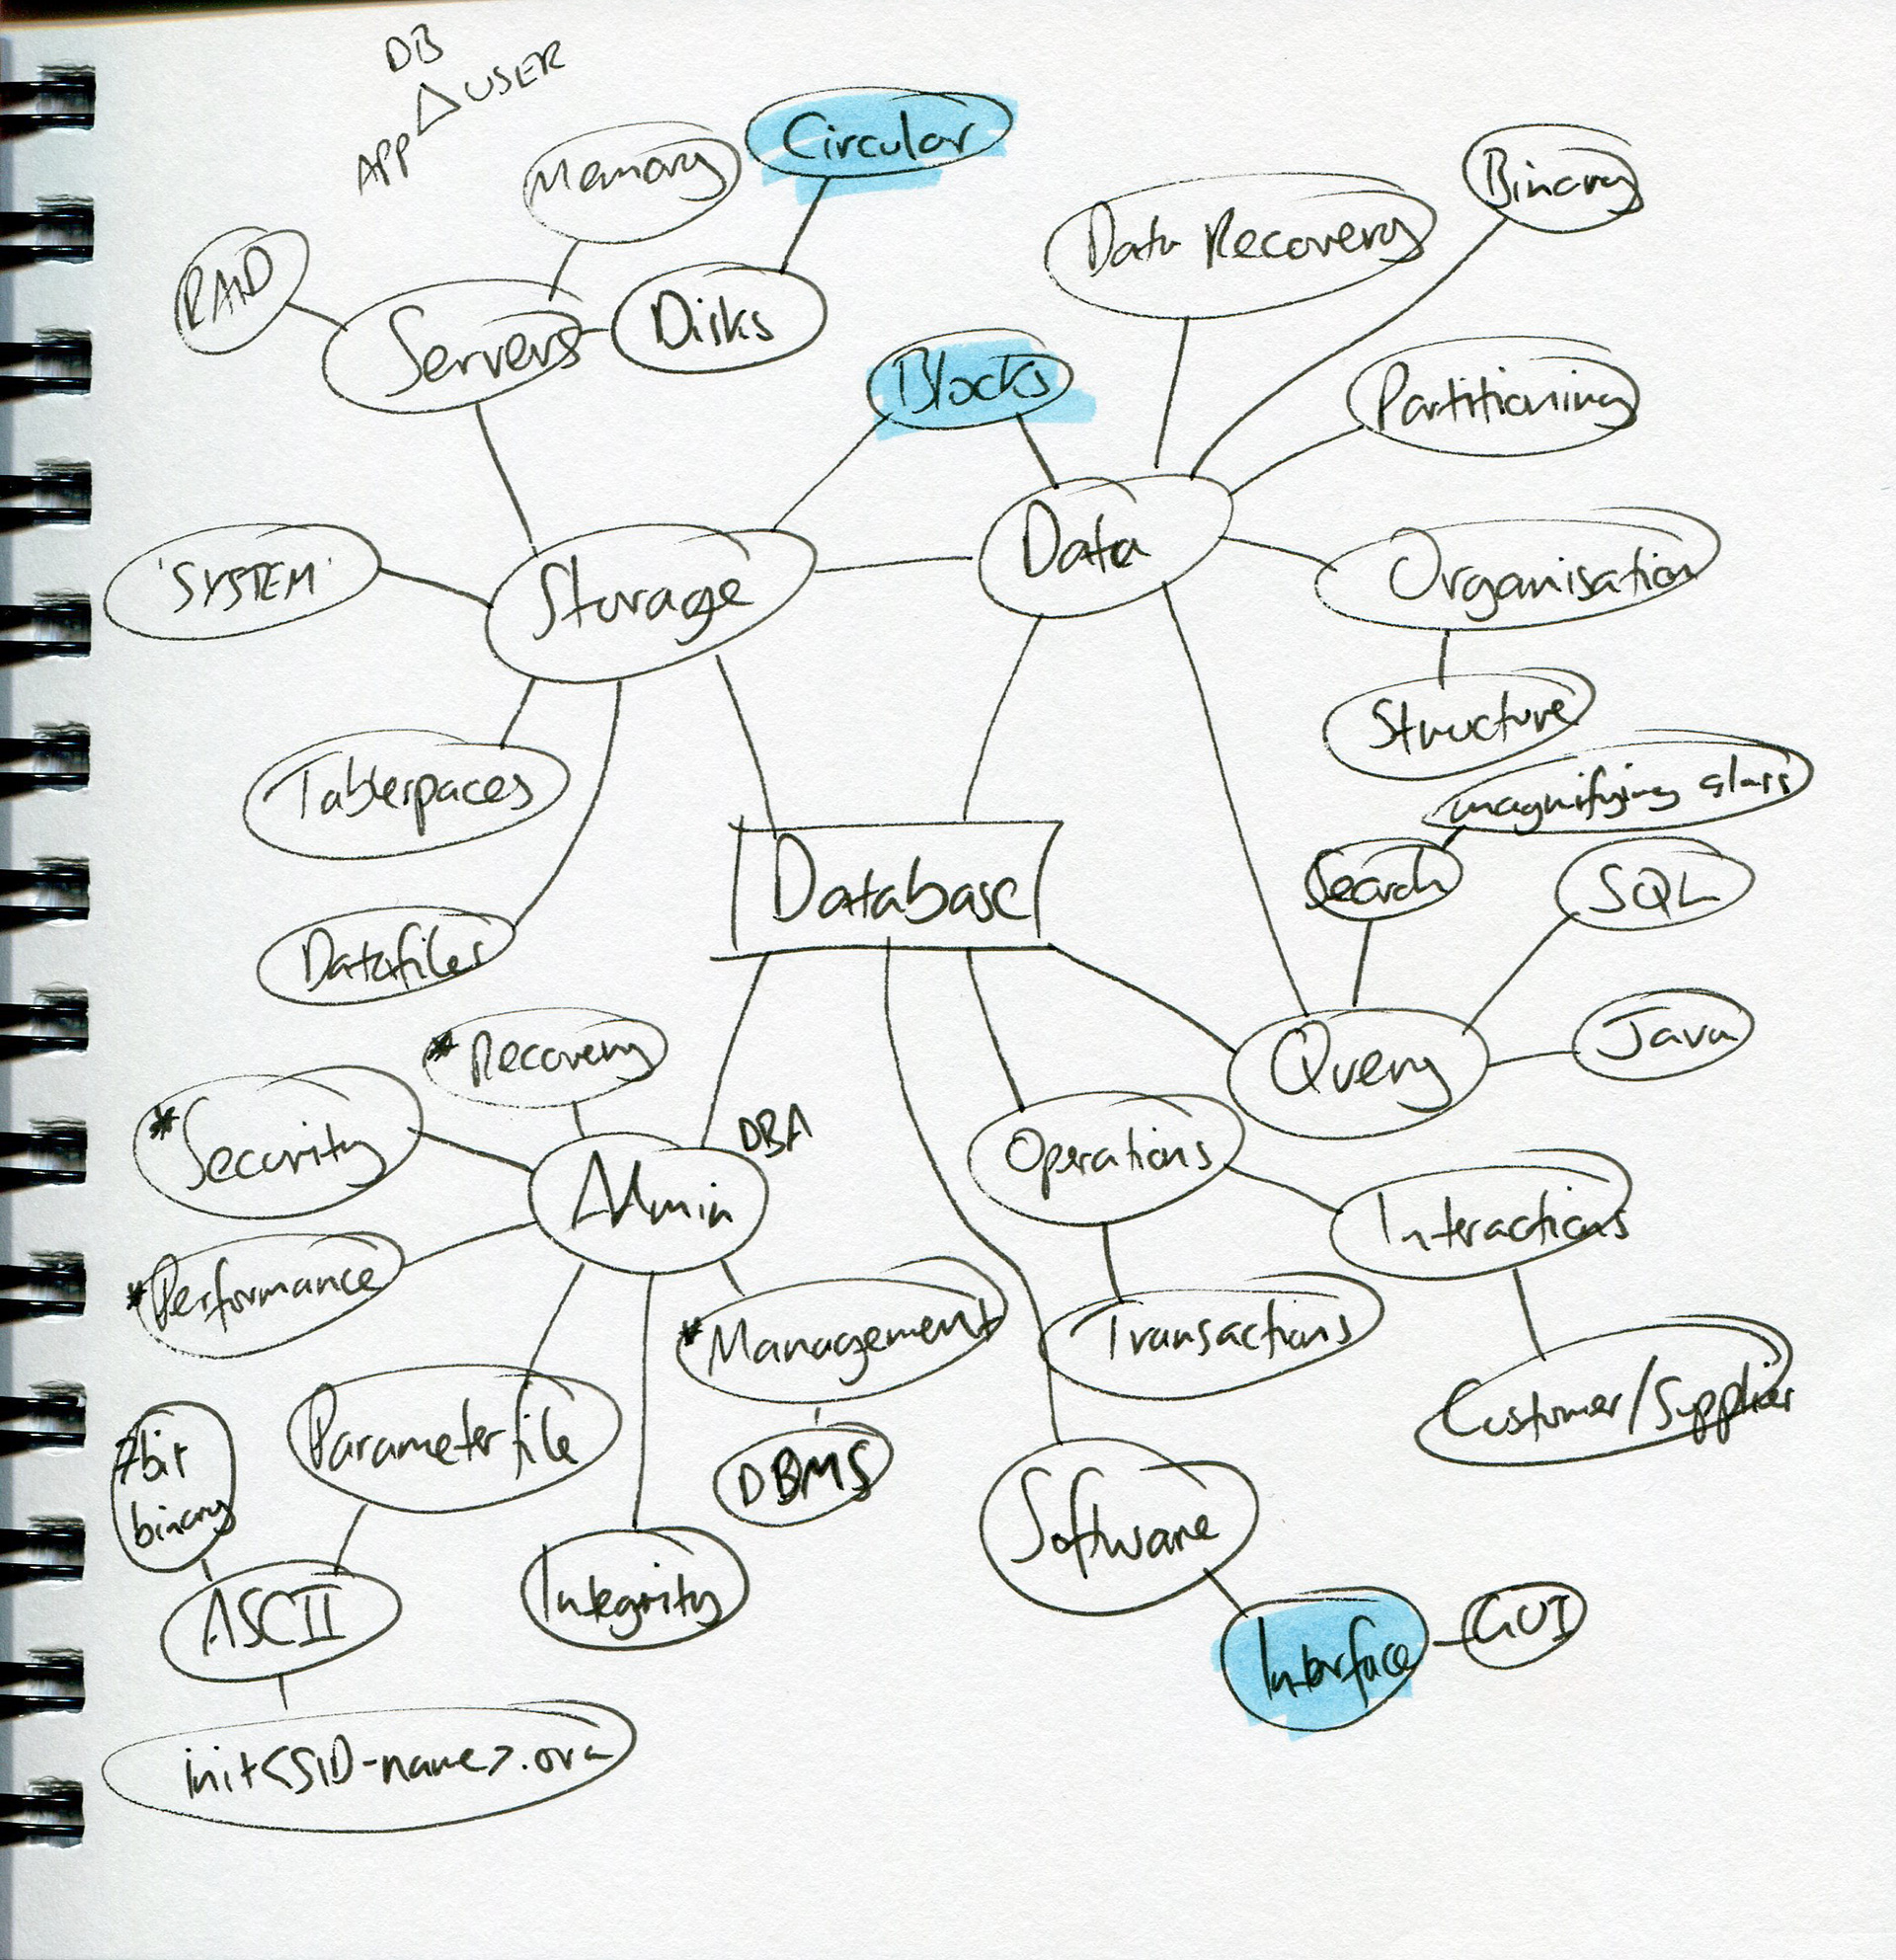 DB
USER
APP
Circular
Memory
Binary
Data Recovery
RAID
Disks
Servers
Blocks
Partitioning
Data
Organisation
'SYSTEM'
Storage
Structure
Tablespaces
magnifying glass
Search
SQL
Database
Datafiles
Java
*Recovery
Query
DBA
*Security
Operations
Admin
Interactions
*Performance
*Management
Transactions
Customer/Supplier
Parameter file
7bit
binary
DBMS
Software
Integrity
ASCII
Interface
GUI
init<SID-name>.ora